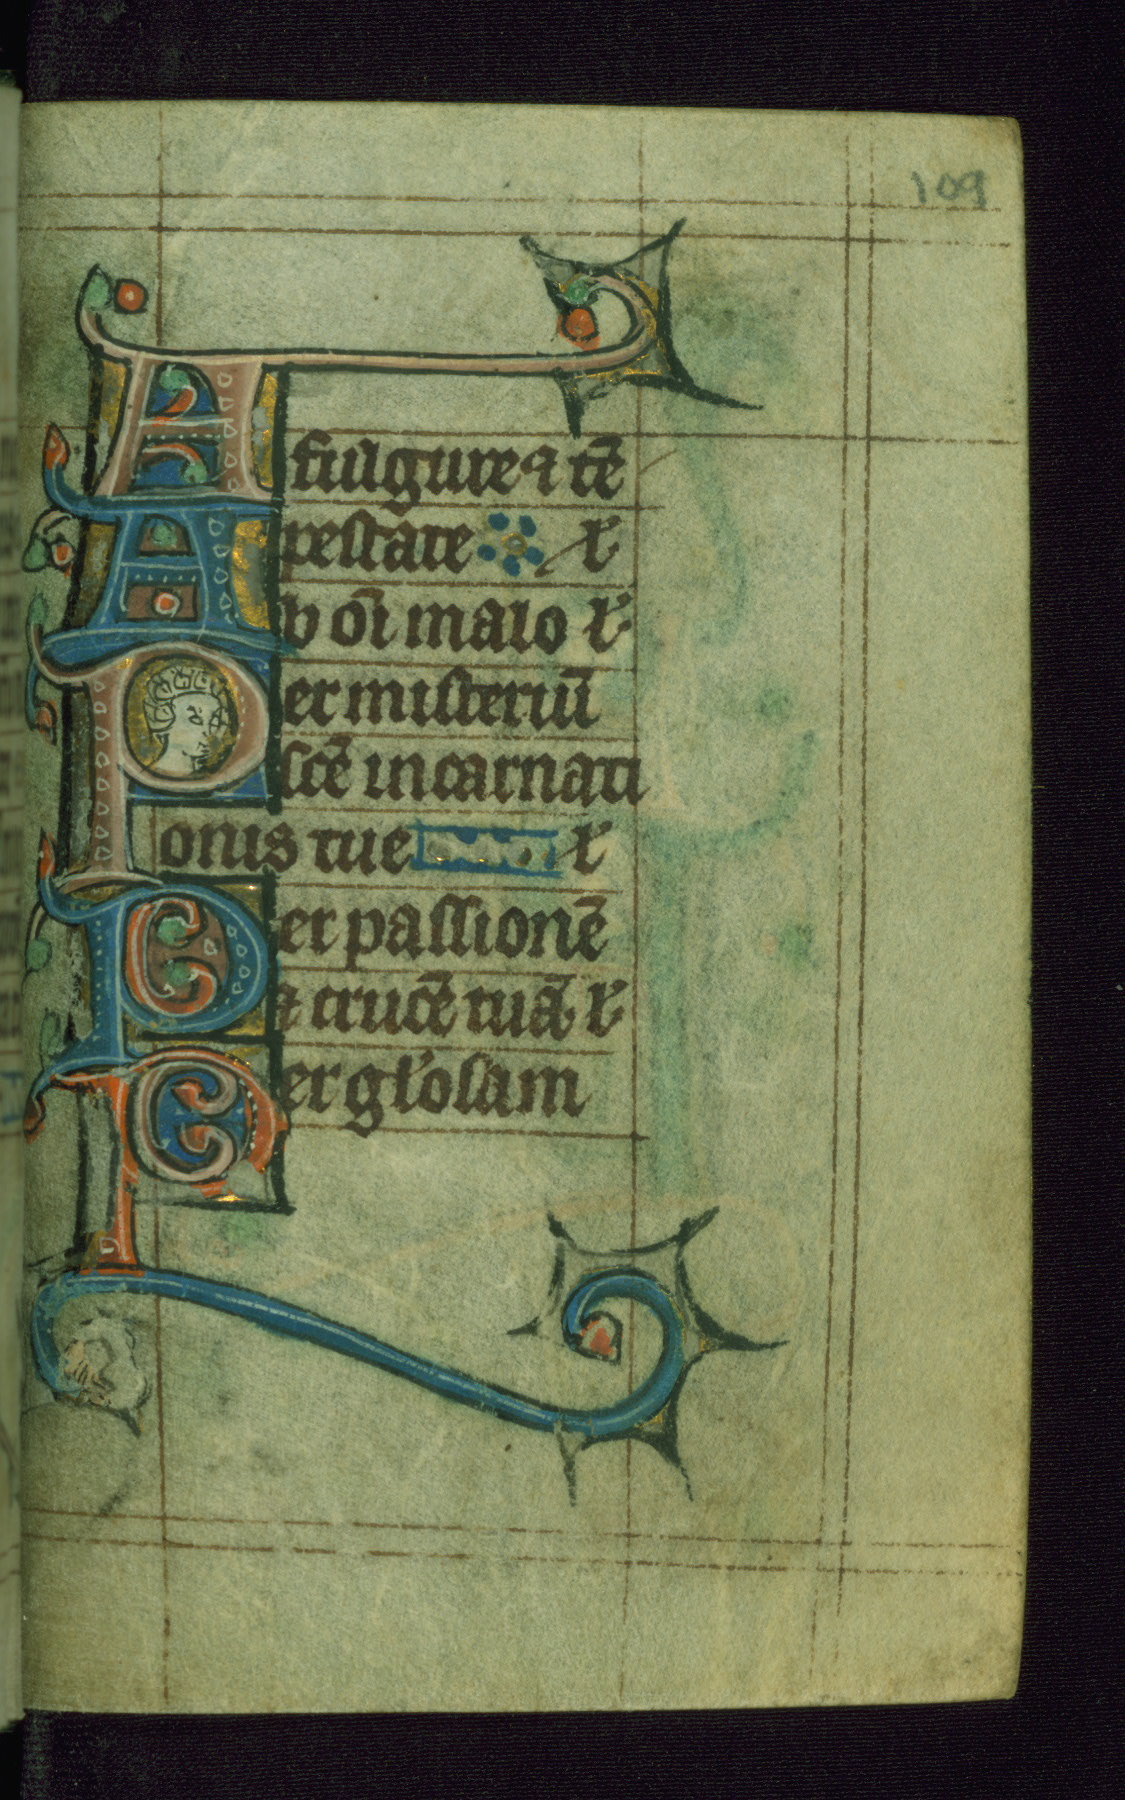 109
A fulgure ⁊ tē
pestate ł
Ab oı̄ malo ł
Per misteriū
scē incarnati
onis tue ł
Per passionē
⁊ crucē tuā ł
Per gl'osam